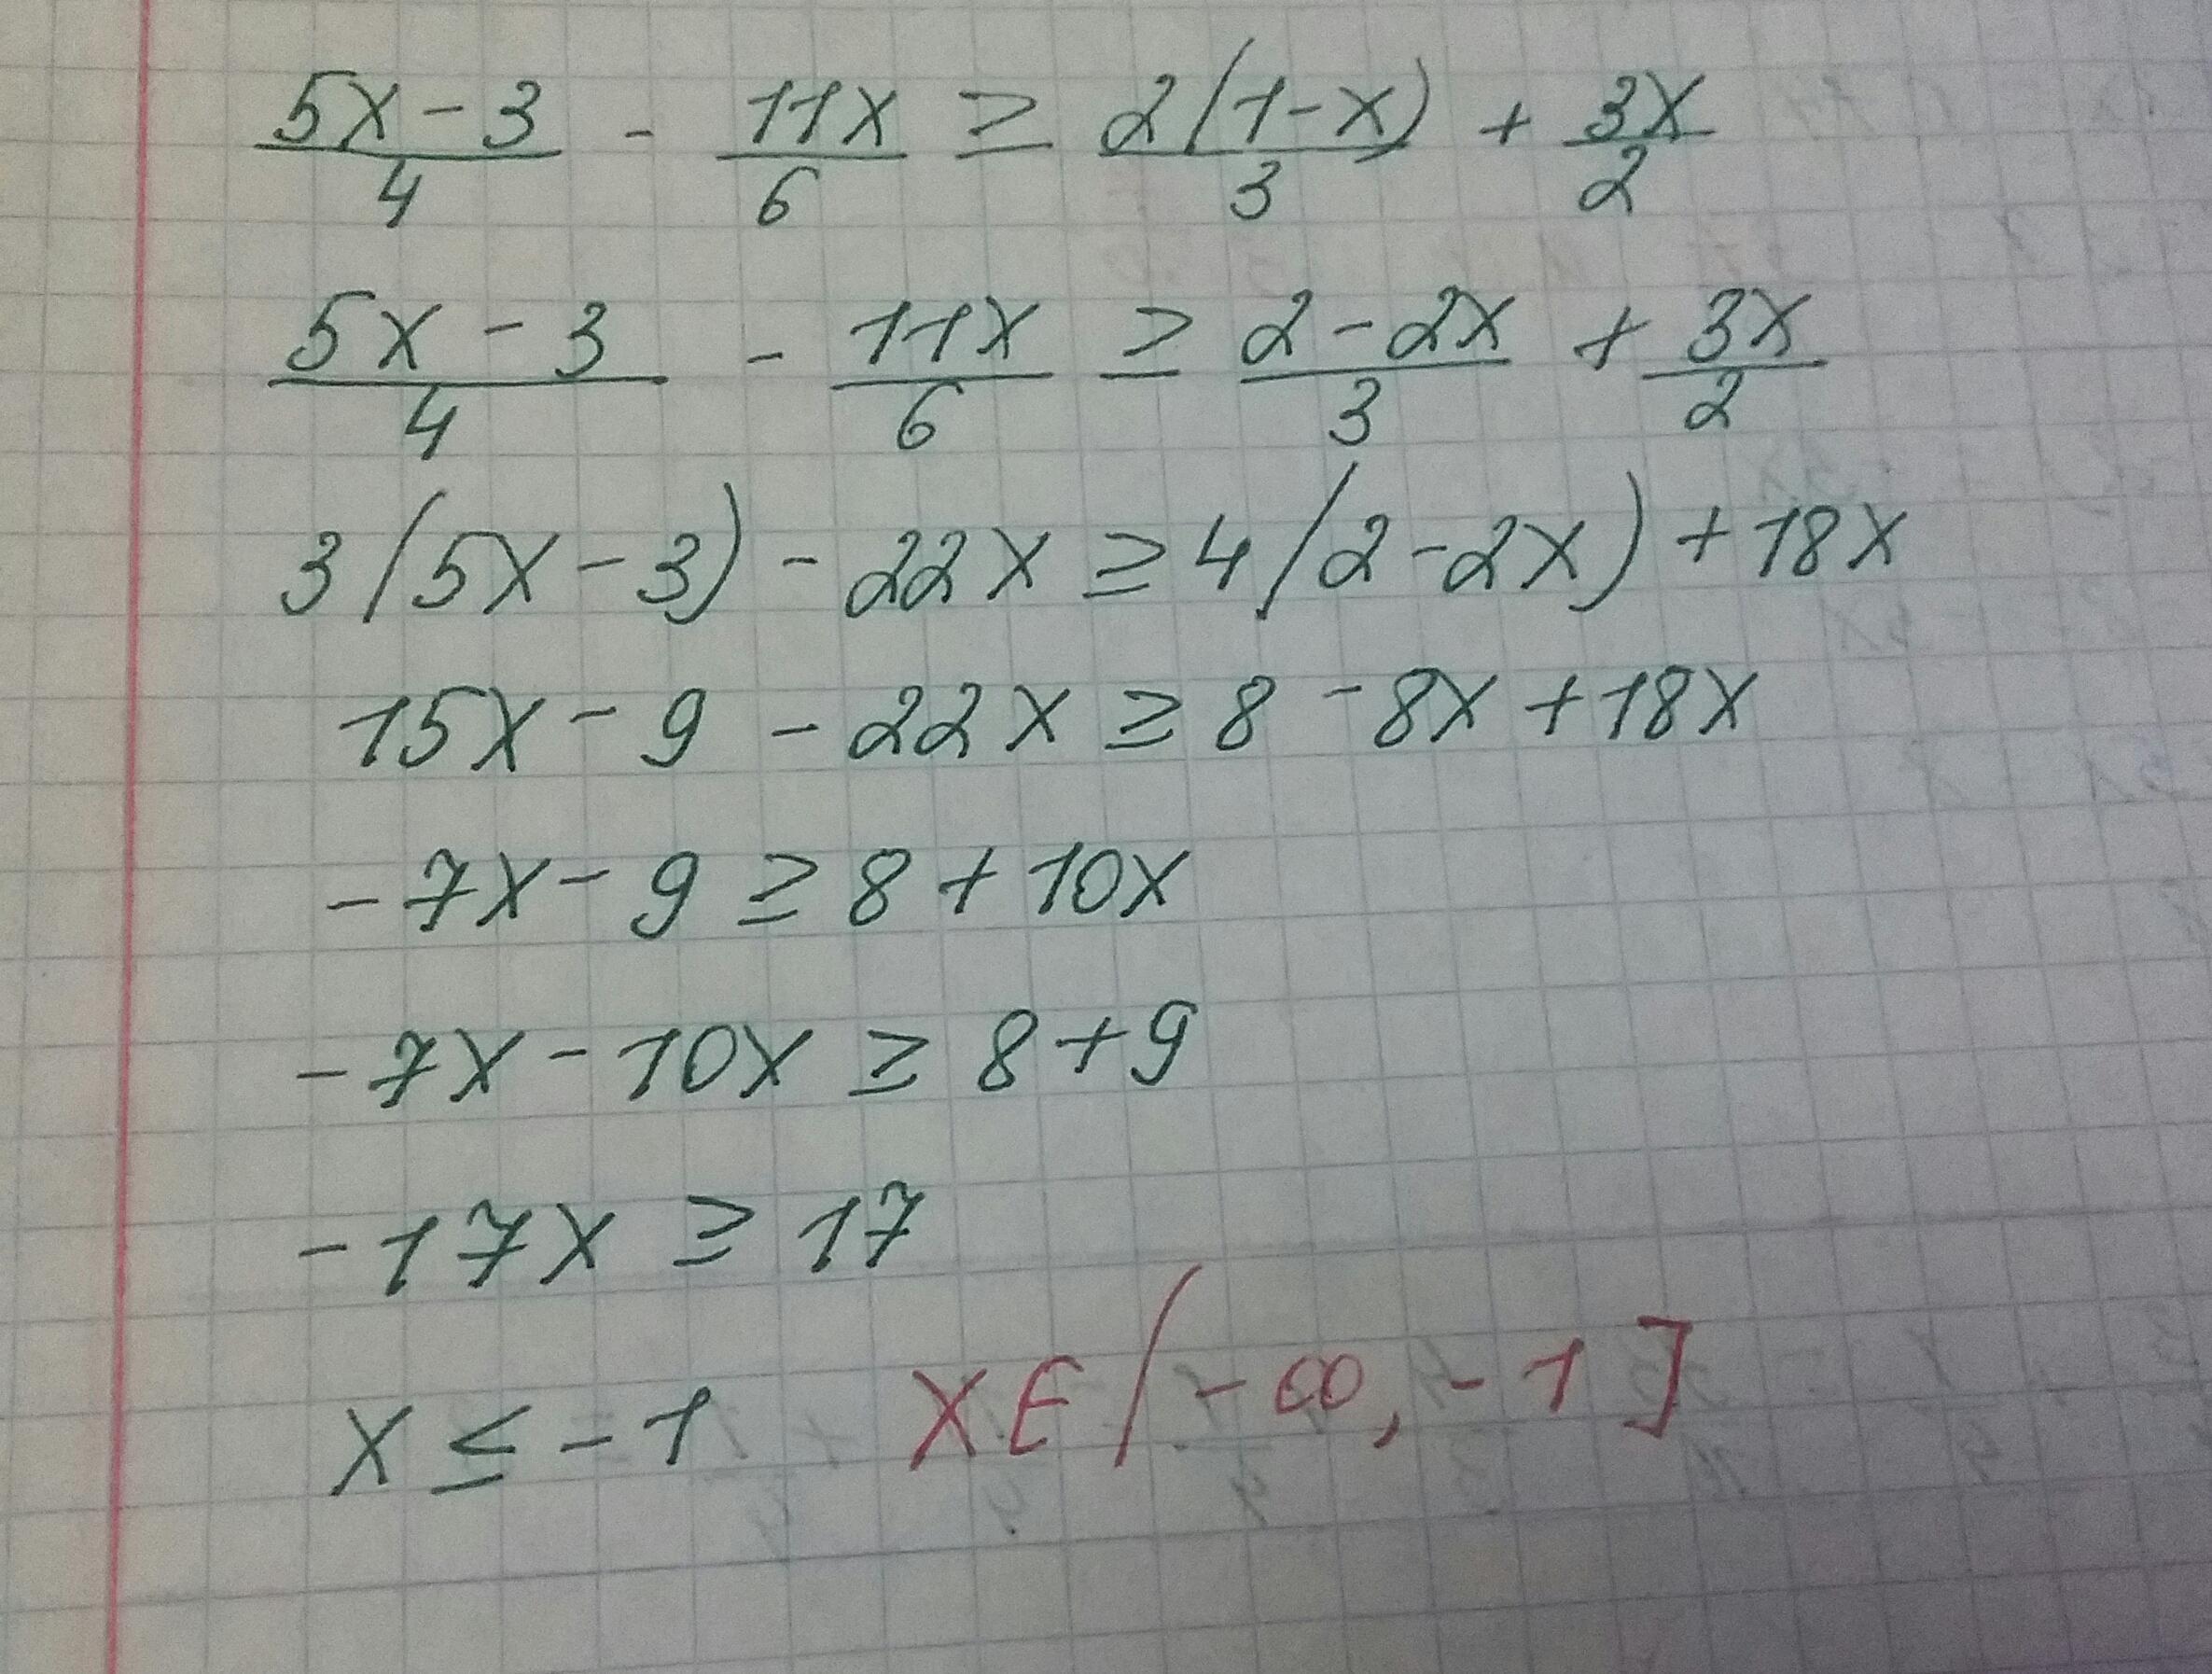 (5x-3)/4 - 11x/6 ≥ 2(1-x)/3 + 3x/2
(5x-3)/4 - 11x/6 ≥ (2-2x)/3 + 3x/2
3(5x-3)-22x≥4(2-2x)+18x
15x-9-22x≥8-8x+18x
-7x-9≥8+10x
-7x-10x≥8+9
-17x≥17
x≤-1 x∈(-∞,-1]